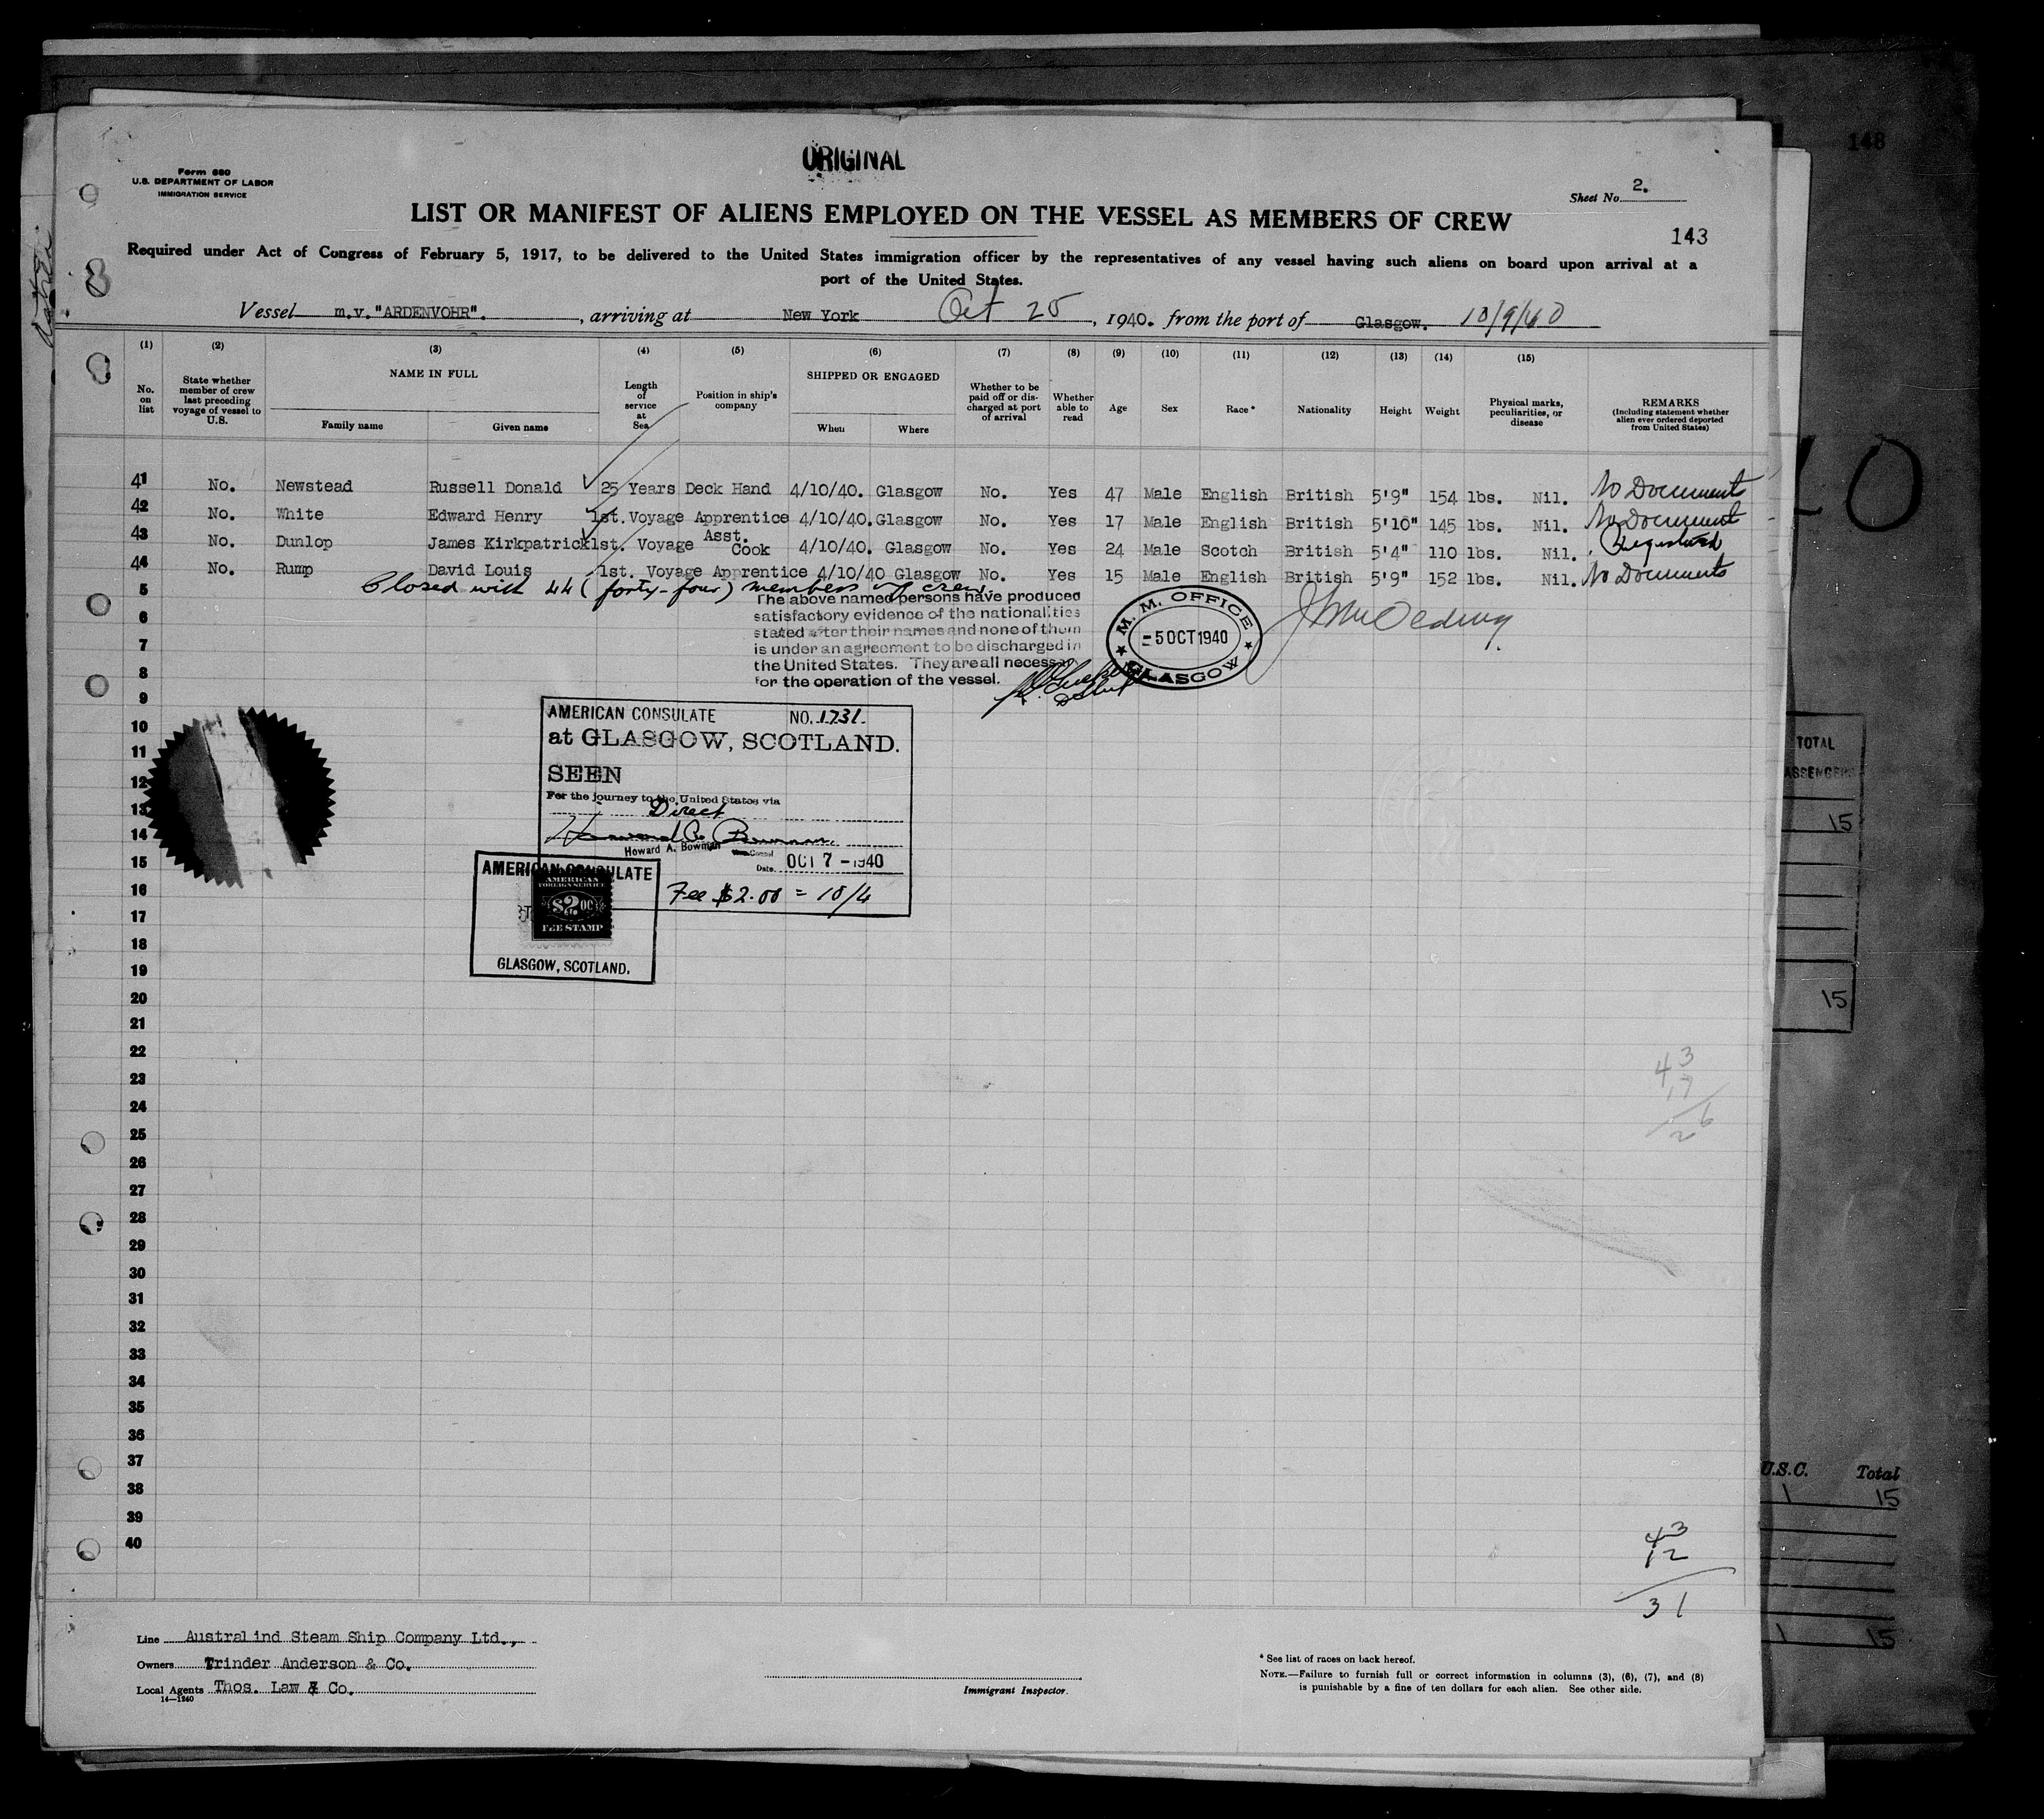 148
ORIGINAL
Form 680
U.S. DEPARTMENT OF LABOR
IMMIGRATION SERVICE
Sheet No. 2.
LIST OR MANIFEST OF ALIENS EMPLOYED ON THE VESSEL AS MEMBERS OF CREW
143
Required under Act of Congress of February 5, 1917, to be delivered to the United States immigration officer by the representatives of any vessel having such aliens on board upon arrival at a
port of the United States.
Vessel m.v."ARDENVOHR"., arriving at New York Oct 25, 1940. from the port of Glasgow. 10/9/40
(1) (2) (3) (4) (5) (6) (7) (8) (9) (10) (11) (12) (13) (14) (15)
No. on list
State whether member of crew last preceding voyage of vessel to U.S.
NAME IN FULL
Family name
Given name
Length of service at Sea
Position in ship's company
SHIPPED OR ENGAGED
When
Where
Whether to be paid off or discharged at port of arrival
Whether able to read
Age
Sex
Race *
Nationality
Height
Weight
Physical marks, peculiarities, or disease
REMARKS
(Including statement whether alien ever ordered deported from United States)
41 No. Newstead Russell Donald 25 Years Deck Hand 4/10/40. Glasgow No. Yes 47 Male English British 5'9" 154 lbs. Nil. No Documents
42 No. White Edward Henry 1st.Voyage Apprentice 4/10/40. Glasgow No. Yes 17 Male English British 5'10" 145 lbs. Nil. No Document
43 No. Dunlop James Kirkpatrick 1st. Voyage Asst. Cook 4/10/40. Glasgow No. Yes 24 Male Scotch British 5'4" 110 lbs. Nil.
44 No. Rump David Louis 1st. Voyage Apprentice 4/10/40 Glasgow No. Yes 15 Male English British 5'9" 152 lbs. Nil. No Documents
Closed with 44 (forty-four) members of crew.
5
6
7
8
9
10
11
12
13
14
15
16
17
18
19
20
21
22
23
24
25
26
27
28
29
30
31
32
33
34
35
36
37
38
39
40
The above named persons have produced
satisfactory evidence of the nationalities
stated after their names and none of them
is under an agreement to be discharged in
the United States. They are all necessary
for the operation of the vessel.
M. M. OFFICE
-5 OCT 1940
GLASGOW
AMERICAN CONSULATE NO. 1731.
at GLASGOW, SCOTLAND.
SEEN
For the journey to the United States via
Direct
Howard A. Bowman
Howard A. Bowman Vice Consul
Date OCT 7 - 1940
Fee $2.00 = 10/4
AMERICAN CONSULATE
AMERICAN
FOREIGN SERVICE
$2.00
FEE STAMP
GLASGOW, SCOTLAND.
TOTAL
PASSENGERS
15
15
43
17
26
U.S.C. Total
1 15
43
12
31
1 15
Line Australind Steam Ship Company Ltd.,
Owners Trinder Anderson & Co.
Local Agents Thos. Law & Co.
14—1240
Immigrant Inspector.
* See list of races on back hereof.
NOTE.—Failure to furnish full or correct information in columns (3), (6), (7), and (8)
is punishable by a fine of ten dollars for each alien. See other side.